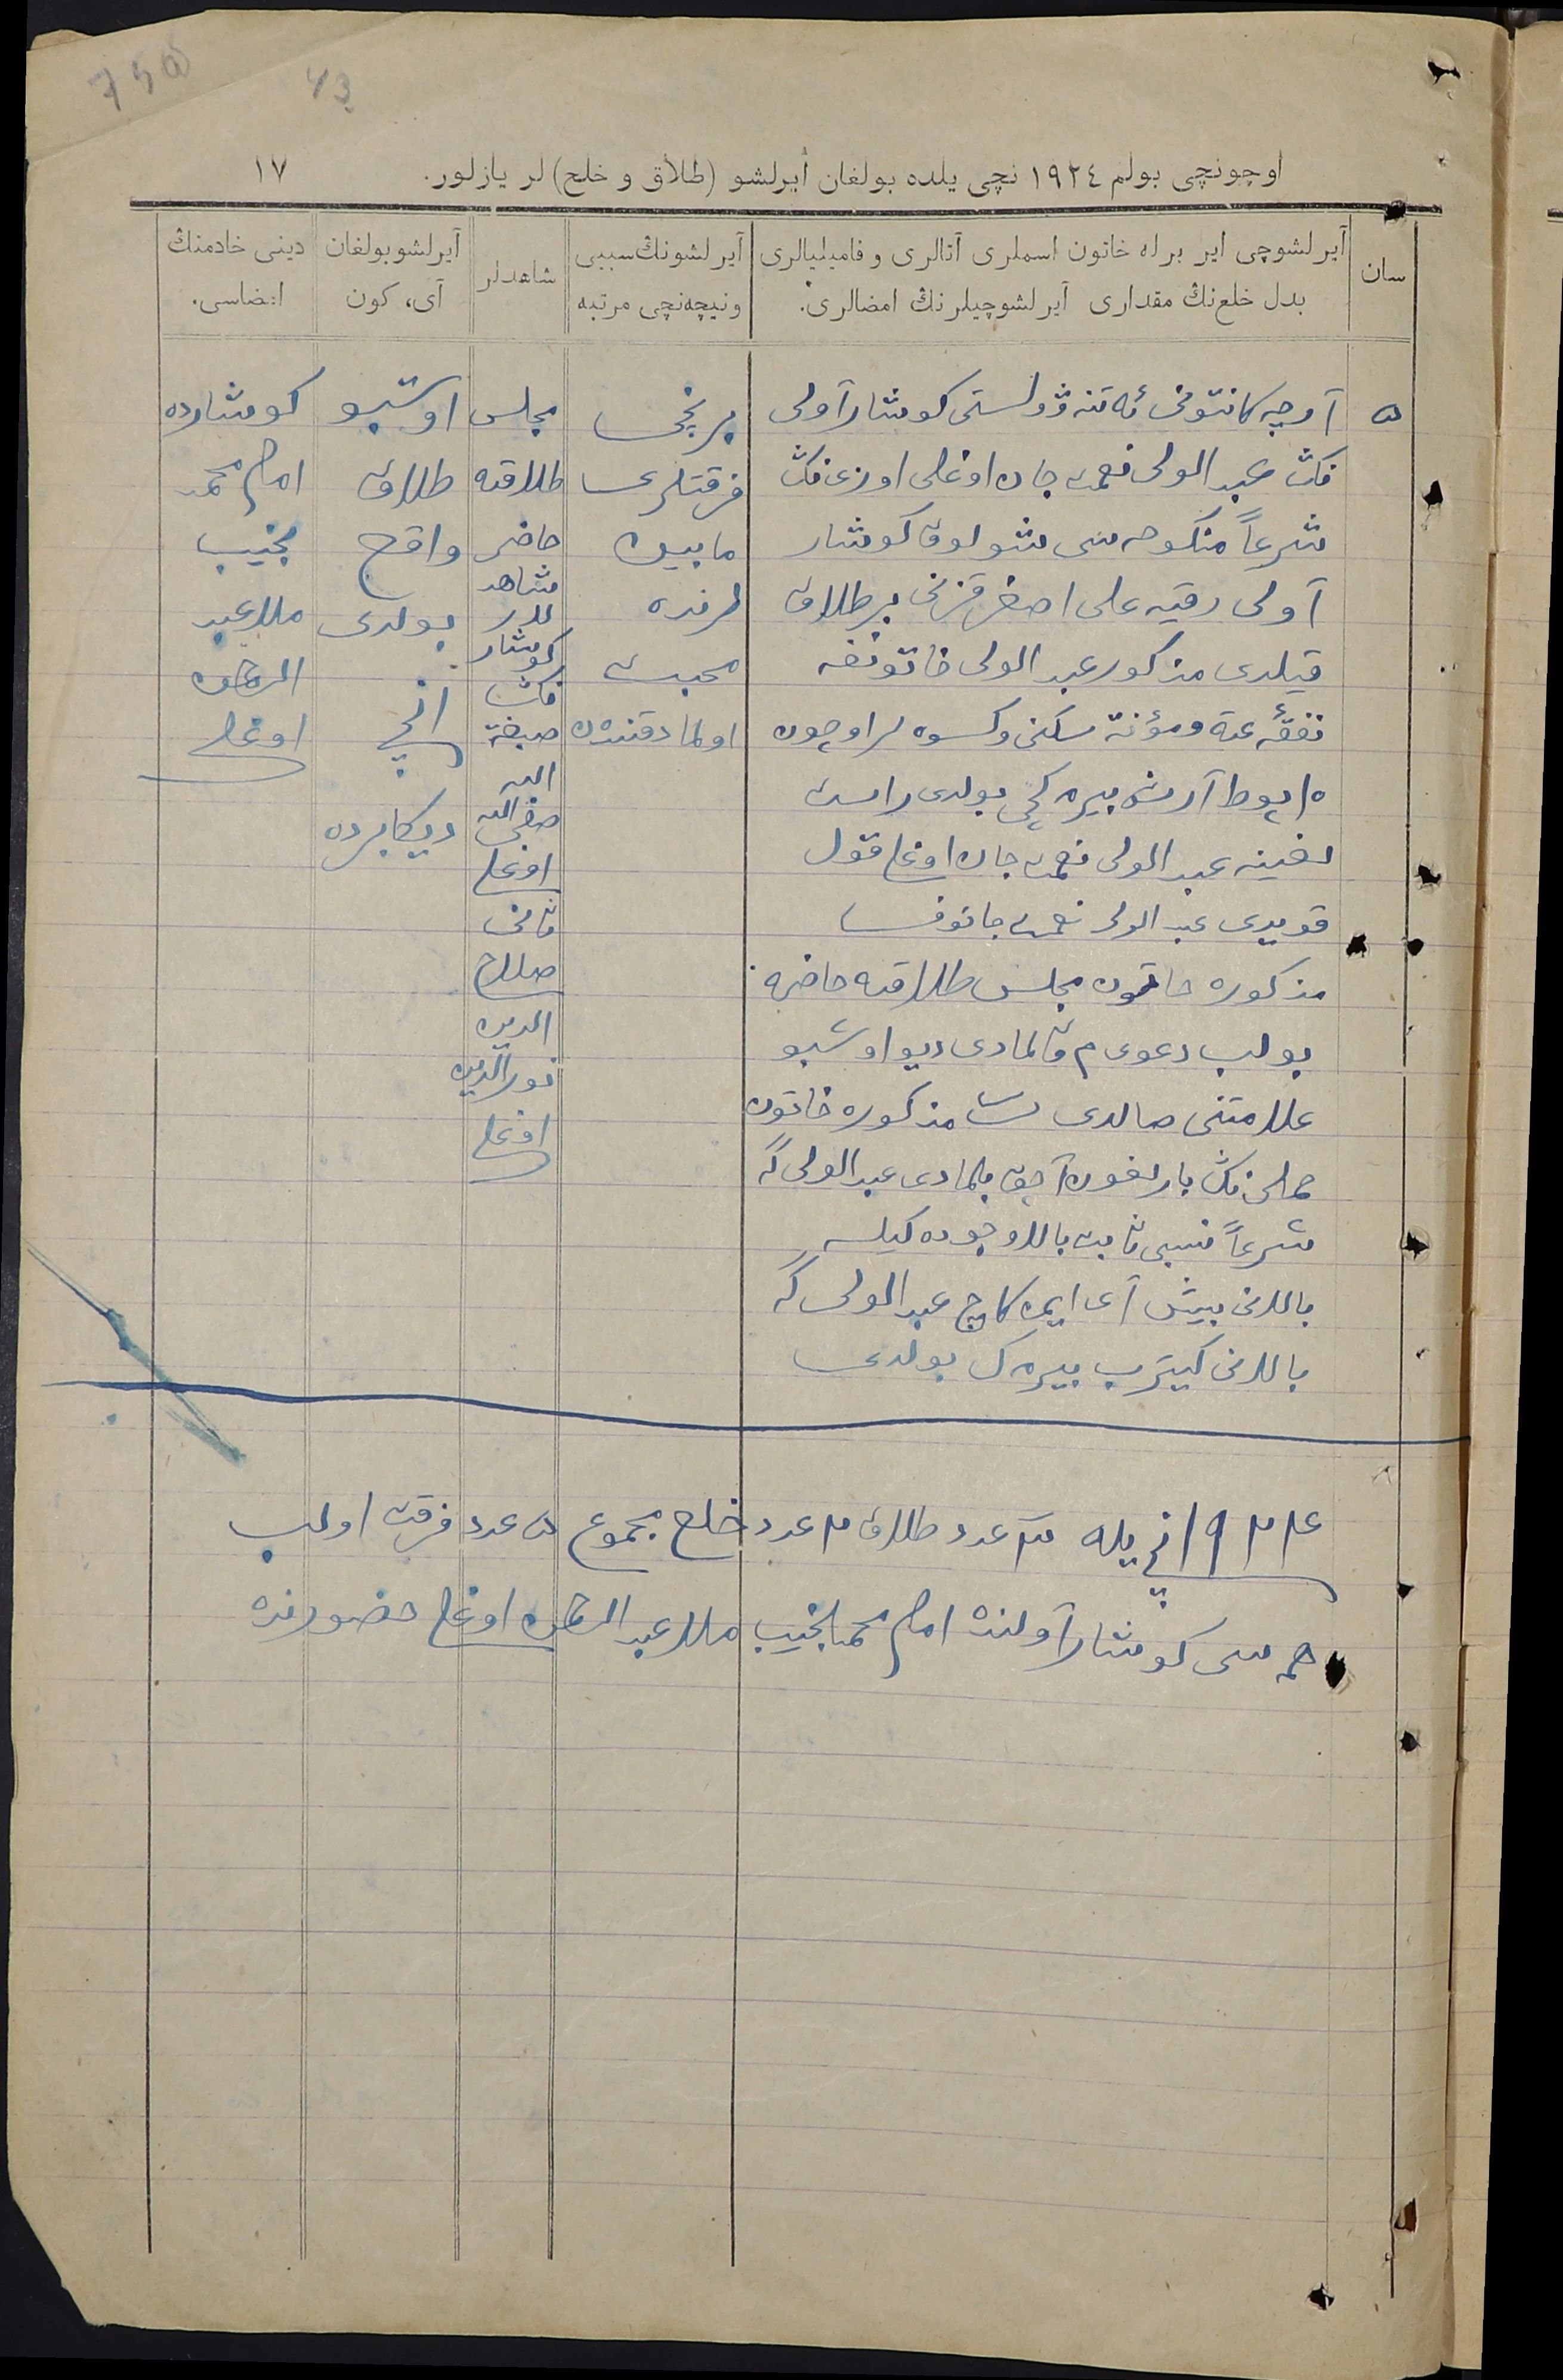 750
43
اوچونچی بولم ١٩٢٤ نچی یلده بولغان آیرلشو (طلاق و خلح) لر یازلور.
١٧
سان
آیرلشوچی ایر براه خاتون اسملری آتالری و فامیلیالری
بدل خلع‌نڭ مقداری آیرلشوچیلرنڭ امضالری.
آیرلشونڭ سببی
ونیچه‌نچی مرتبه
شاهدلر
آیرلشو بولغان
آی، کون
دینی خادمنڭ
امضاسی.
۵
آرچه کانتونی ئه‌تنه وولستی کوشار آولی
نڭ عبد الولی نعمت جان اوغلی اوزی‌نڭ
شرعاً منکوحه سی شولوق کوشار
آولی رقیه علی اصغر قزنی بر طلاق
قیلدی مذکور عبد الولی خاتونغه
نفقۀ عدة ومؤنة سکنی وکسوه لر اوچون
١٠ پوط آرش بیره‌چک بولدی راست
لغینه عبد الولی نعمت جان اوغلی قول
قویدی عبد الولی نعمت جانوف
مذکوره خاتون مجلس طلاقده حاضره
بولب دعوی م قالمادی دیو اوشبو
علامتنی صالدی مذکوره خاتون
حملی‌نڭ بارلغون آچق بلمادی عبد الولی گه
شرعاً نسبی ثابت بالا وجوده کیلسه
بالانی بیش آی ایمه‌کاچ عبد الولی گه
بالانی کیترب بیره‌ک بولدی
برنچی
فرقتلری
مابین
لرنده
محبت
اولمادقندن
مجلس
طلاقده
حاضر
شاهد
لار
کوشار
نڭ
صبغة
الله
صفی الله
اوغلی
ثانی
صلاح
الدین
نور الدین
اوغلی
اوشبو
طلاق
واقع
بولدی
١نچی
دیکابرده
کوشارده
امام محمد
نجیب
ملا عبد
الرحمن
اوغلی
١٩٢٤نچی یلده ٣ عدد طلاق ٢ عدد خلع مجموع ۵ عدد فرقت اولب
همه سی کوشار آولنده امام محمد نجیب ملا عبد الرحمن اوغلی حضورنده